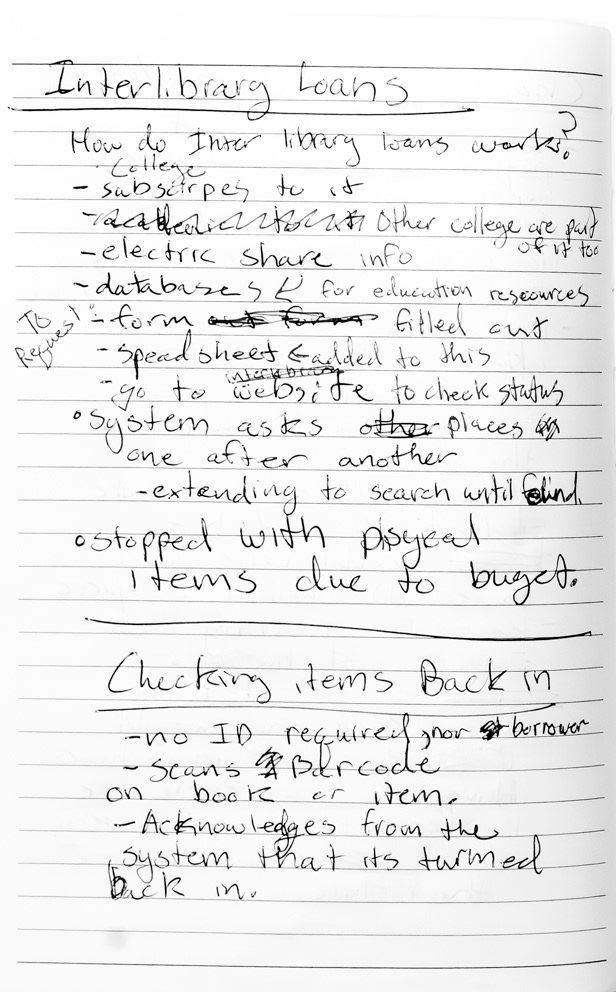 Interlibrary Loans
How do Inter library loans work?
College
- subscripes to it
- Other college are part
of it too
- electric share info
- databases for education resources
To Request:
- form filled out
- spead sheet ← added to this
interlibrary
- go to website to check status
• system asks other places
one after another
- extending to search until found.
• stopped with physical
items due to buget.
Checking items Back in
- no ID required, nor borrower
- scans Barcode
on book or item.
- Acknowledges from the
system that its turned
back in.